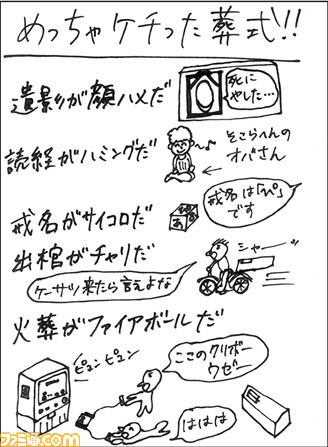 めっちゃケチった葬式!!
遺影が顔ハメだ
死に
やした…
読経がハミングだ
そこらへんの
オバさん
戒名がサイコロだ
あ
戒名は「ぺ」
です
出棺がチャリだ
シャーッ
ケーサツ来たら言えよな
火葬がファイアボールだ
ピュンピュン
ここのクリボー
ウゼー
ははは
ファミ通.com